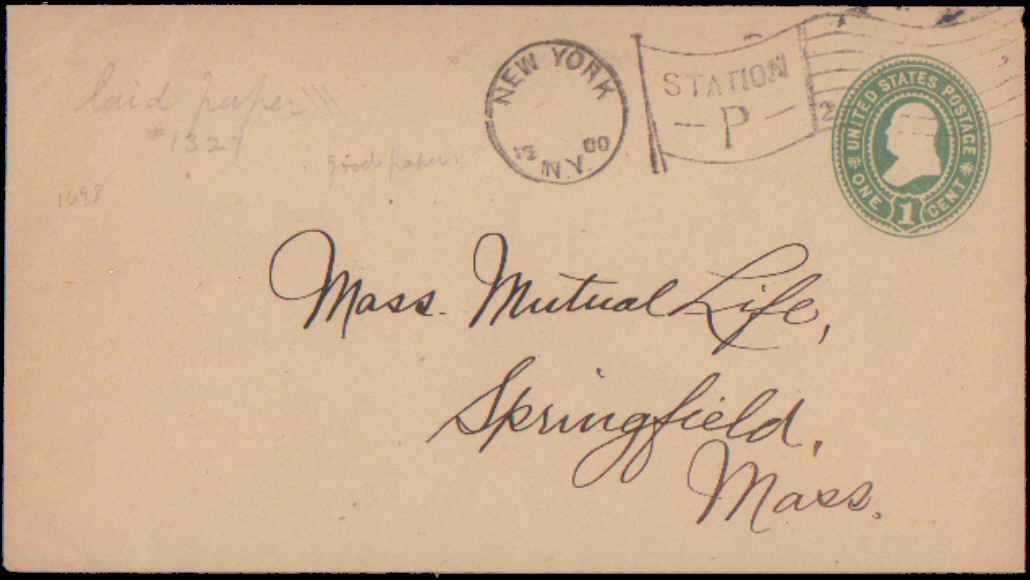 laid paper
#1327
good paper
1698
NEW YORK
N.Y.
00
STATION
P
UNITED STATES POSTAGE
ONE 1 CENT
Mass. Mutual Life,
Springfield,
Mass.